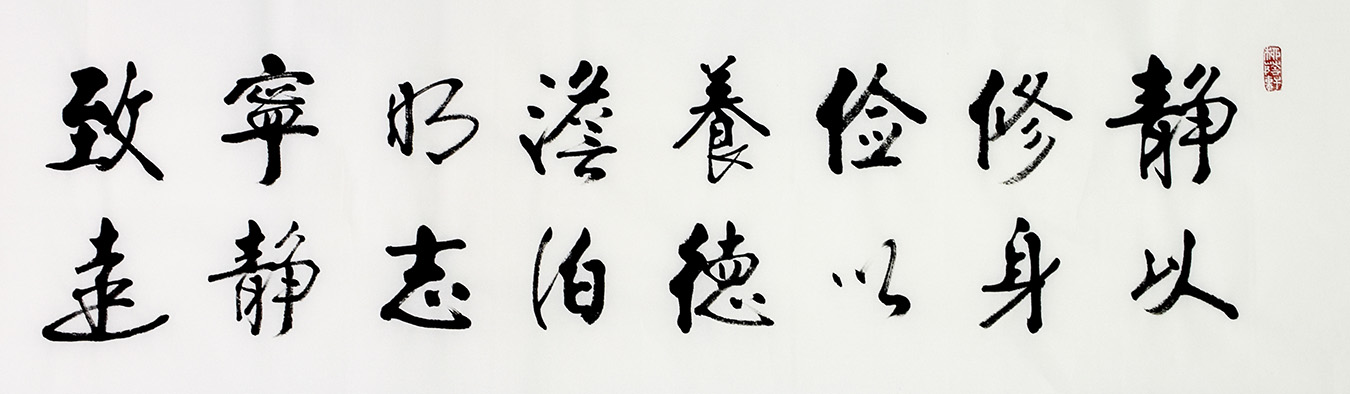 静以
修身
俭以
養德
澹泊
明志
寧静
致遠